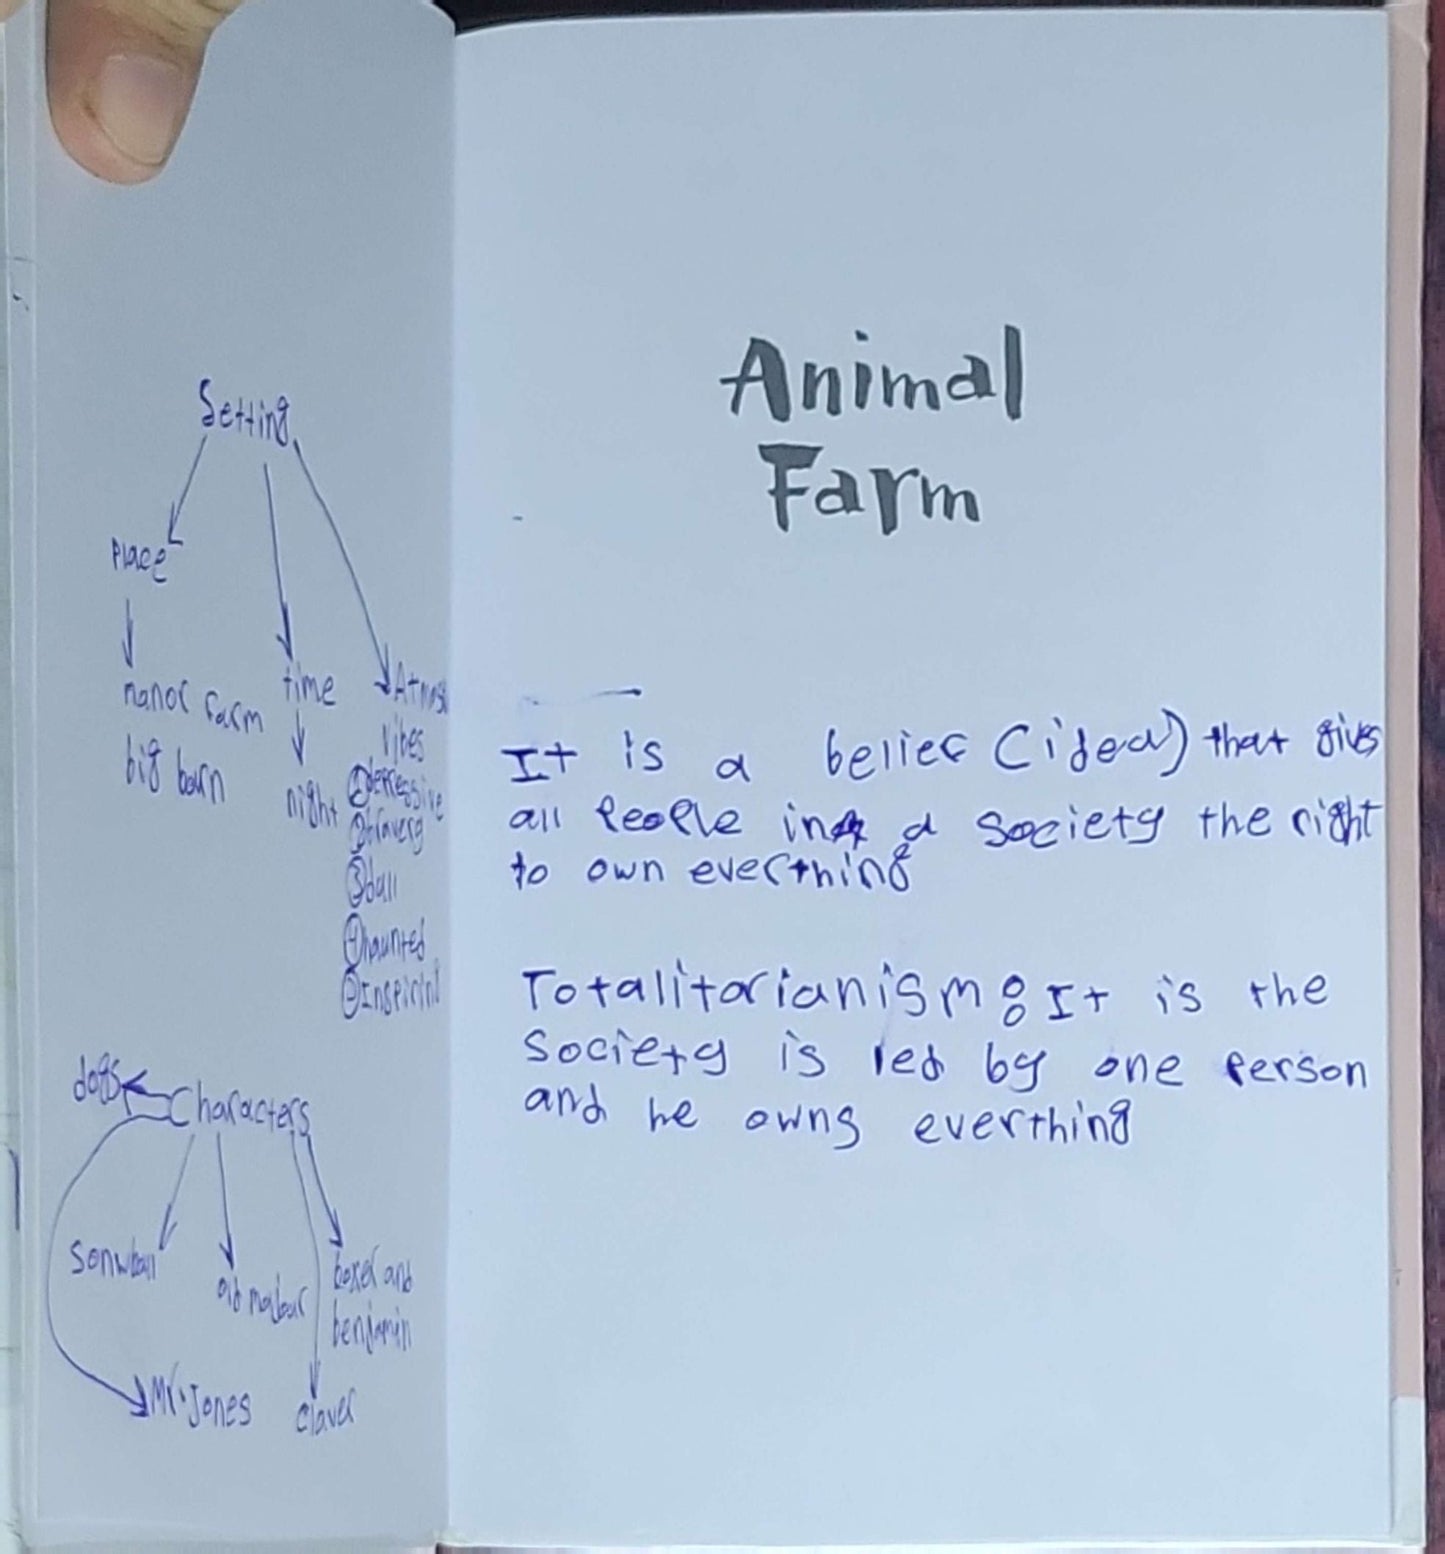 Setting
Place
manor farm
big barn
time
night
Atmos
vibes
① depressive
② bravery
③
④ haunted
⑤ Inspirin
dogs
Characters
old
boxer and
benjamin
Mr. Jones
claver
Animal
Farm
It is a belief (idea) that gives
all People in a society the right
to own everthing
Totalitarianism: It is the
society is led by one Person
and he owns everthing